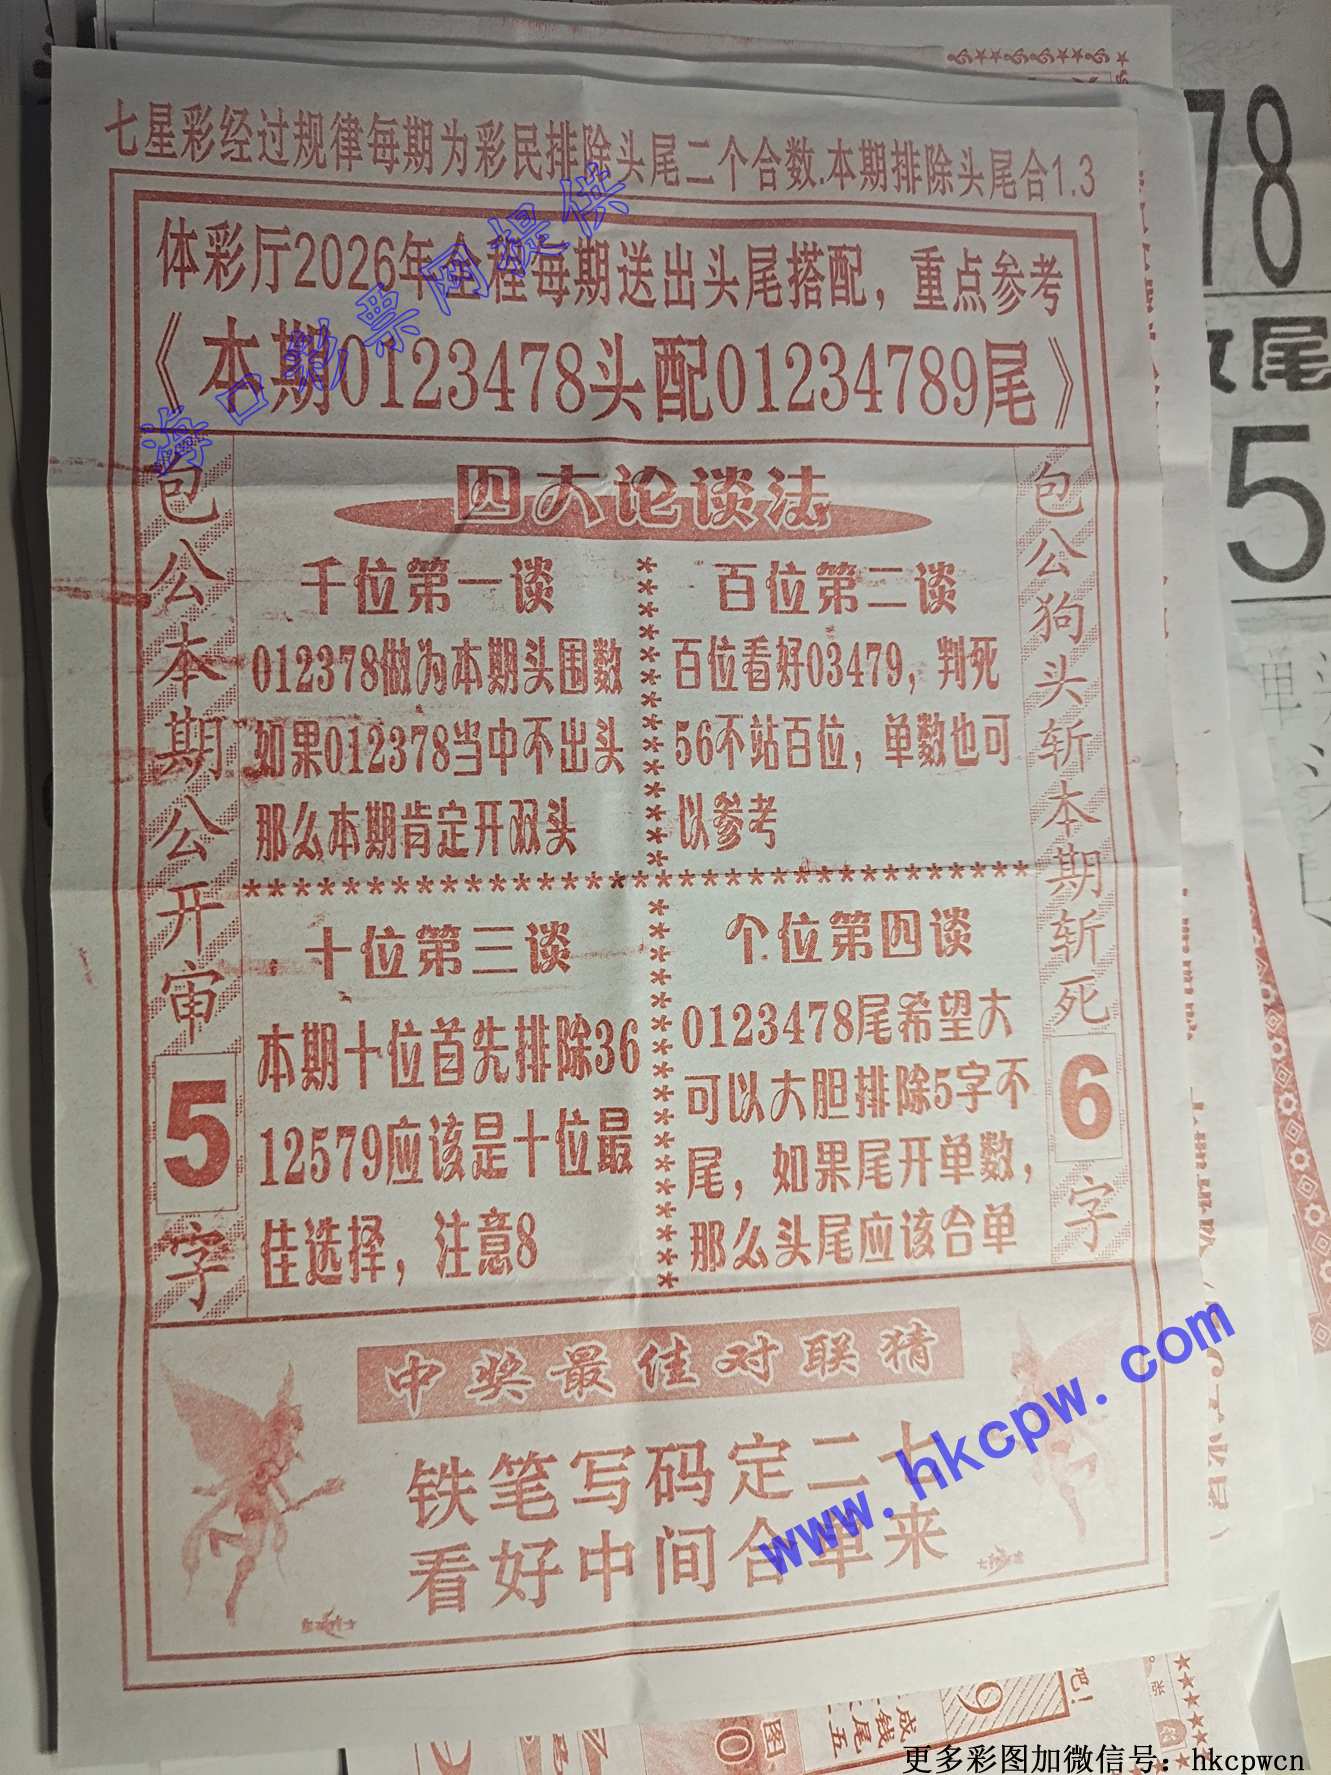 七星彩经过规律每期为彩民排除头尾二个合数.本期排除头尾合1.3
体彩厅2026年全程每期送出头尾搭配，重点参考
《本期0123478头配01234789尾》
海口彩票网提供
包公本期公开审5字
四大论谈法
千位第一谈
012378做为本期头围数
如果012378当中不出头
那么本期肯定开双头
百位第二谈
百位看好03479，判死
56不站百位，单数也可
以参考
十位第三谈
本期十位首先排除36
12579应该是十位最
佳选择，注意8
个位第四谈
0123478尾希望大
可以大胆排除5字不
尾，如果尾开单数，
那么头尾应该合单
包公狗头斩本期斩死6字
中奖最佳对联猜
铁笔写码定二七
看好中间合单来
www.hkcpw.com
78
尾
5
单
9
吧!
成
钱
尾
五
图
0
张
更多彩图加微信号：hkcpwcn